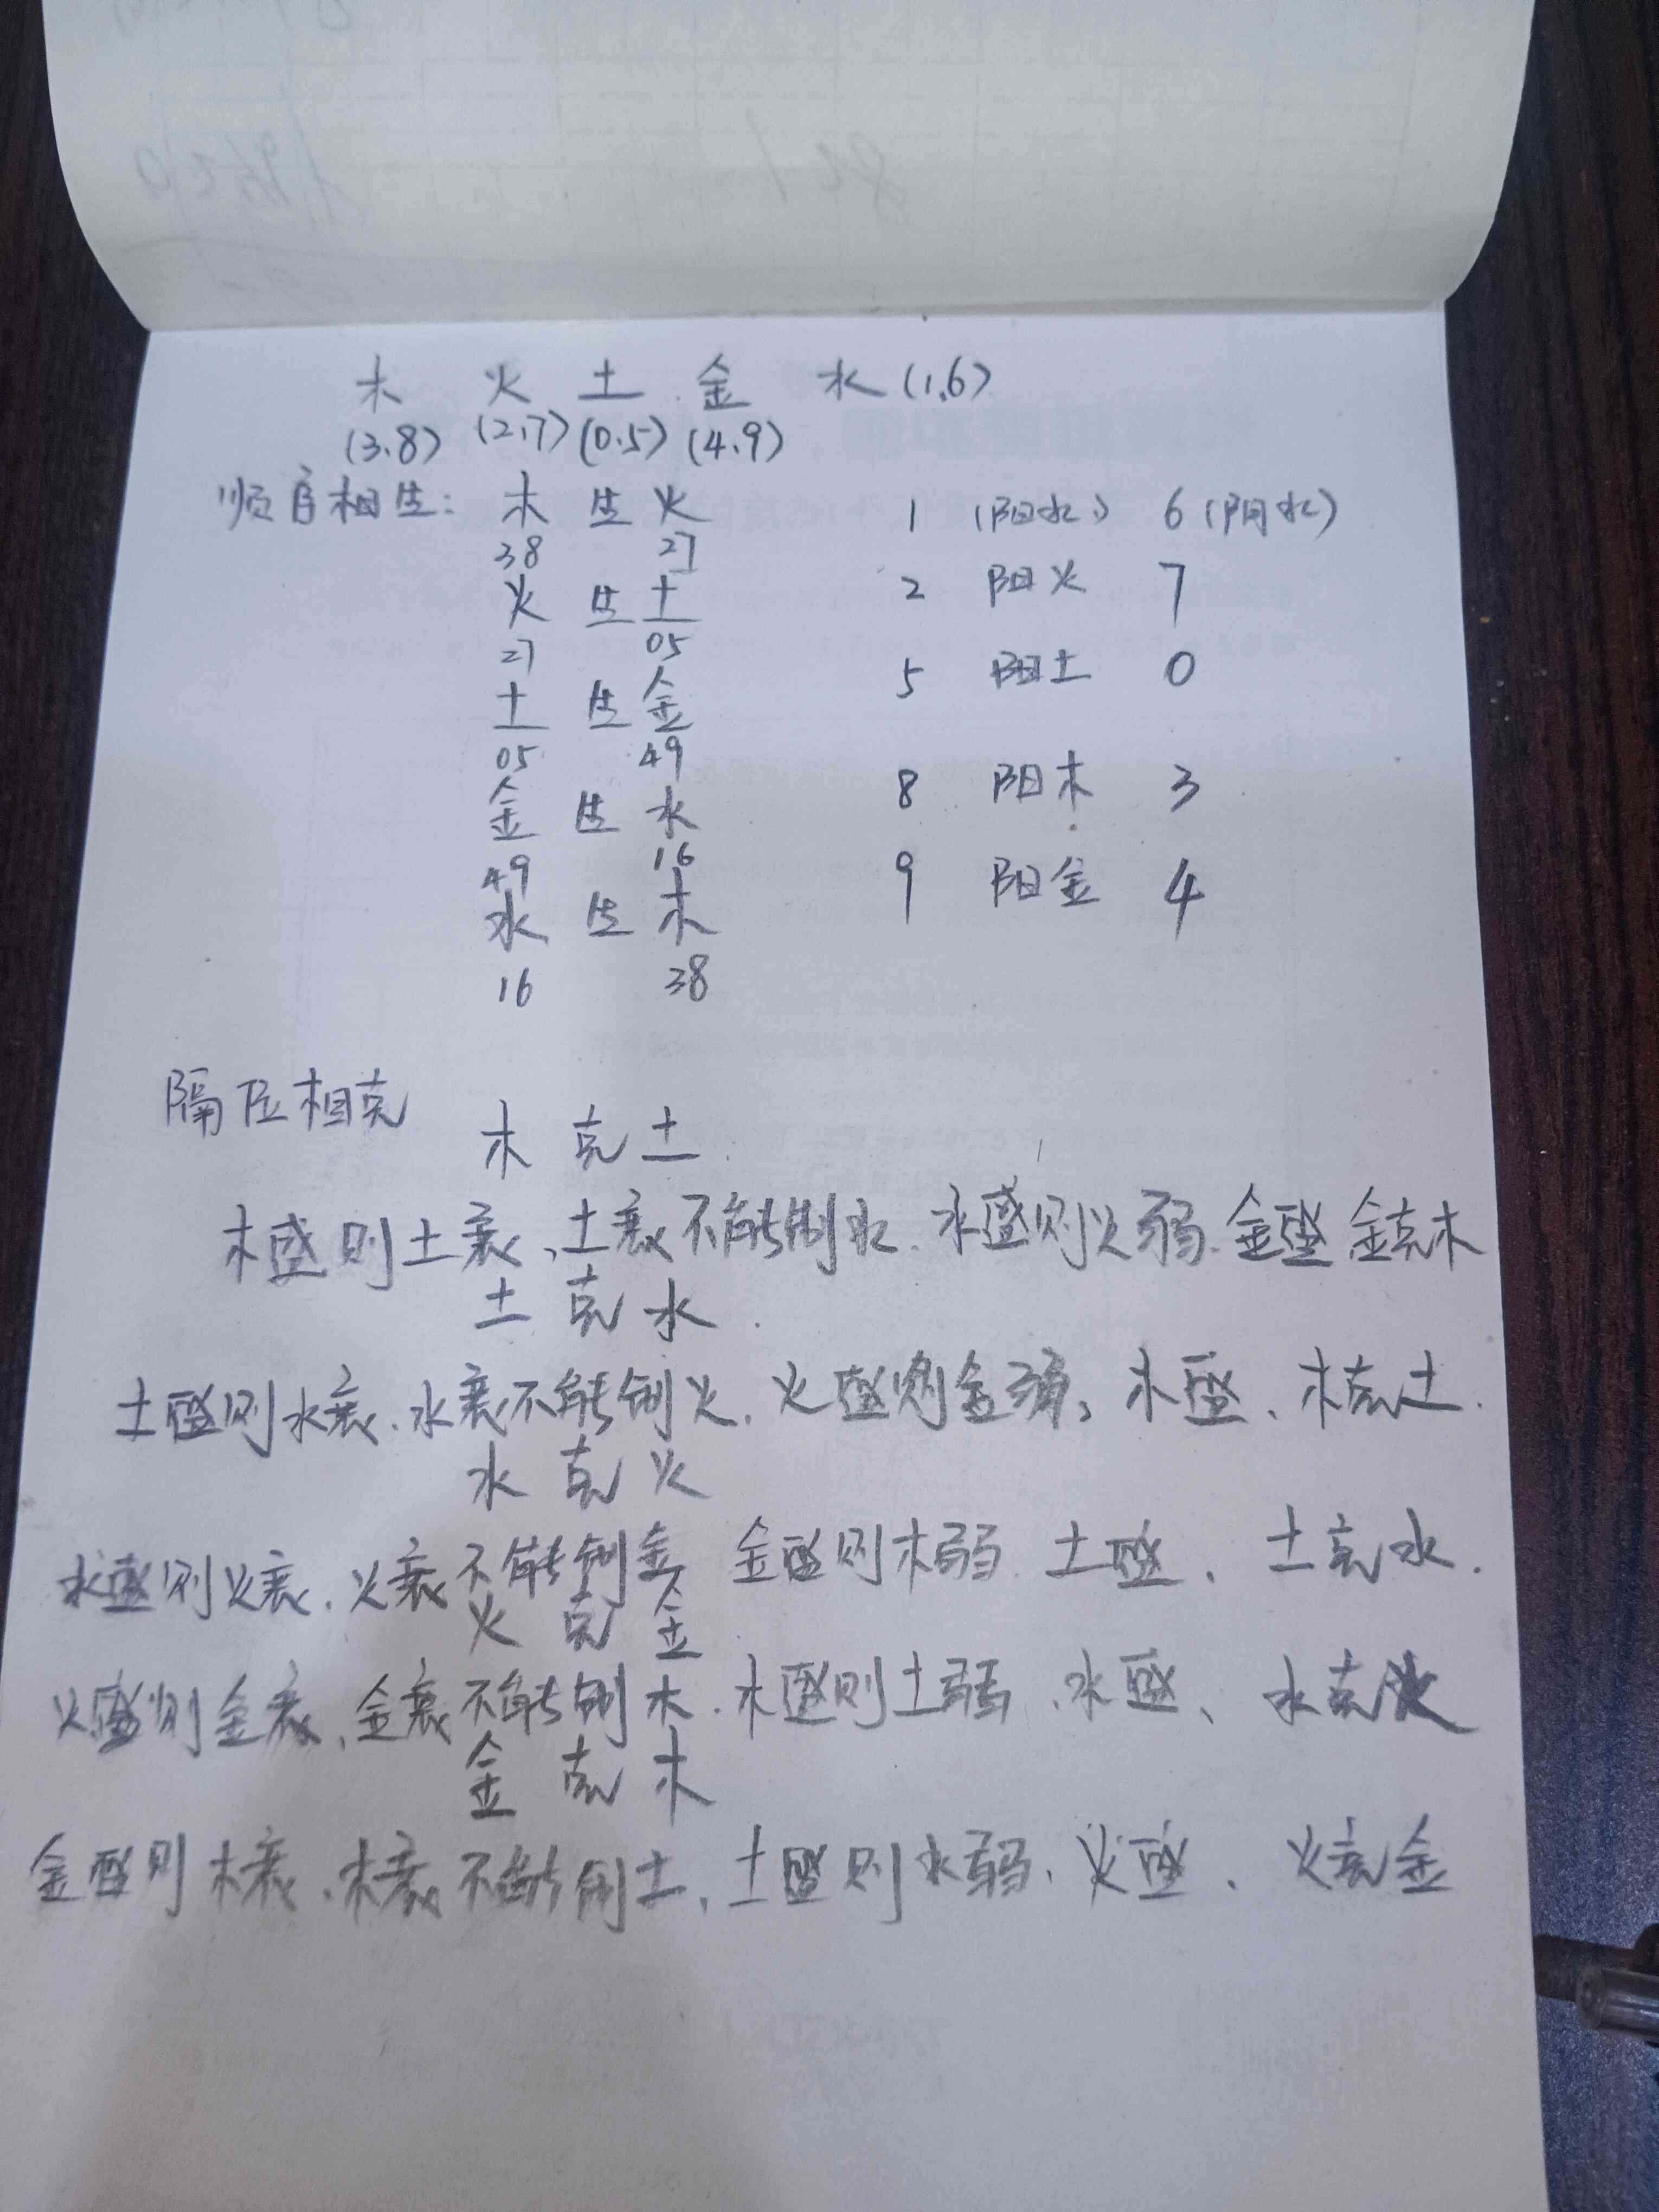 木 火 土 金 水(1.6)
(3.8) (2.7) (0.5) (4.9)
顺序相生: 木 生 火 1 (阳水) 6(阴水)
38 27
火 生 土 2 阳火 7
27 05
土 生 金 5 阳土 0
05 49
金 生 水 8 阳木 3
49 16
水 生 木 9 阳金 4
16 38
隔位相克
木 克 土
木盛则土衰、土衰不能制水. 水盛则火弱. 金盛 金克木
土 克 水
土盛则水衰. 水衰不能制火. 火盛则金弱、木盛、木克土.
水 克 火
水盛则火衰. 火衰不能制金 金盛则木弱. 土盛、土克水.
火 克 金
火盛则金衰、金衰不能制木. 木盛则土弱、水盛、水克火
金 克 木
金盛则木衰、木衰不能制土、土盛则水弱. 火盛、火克金